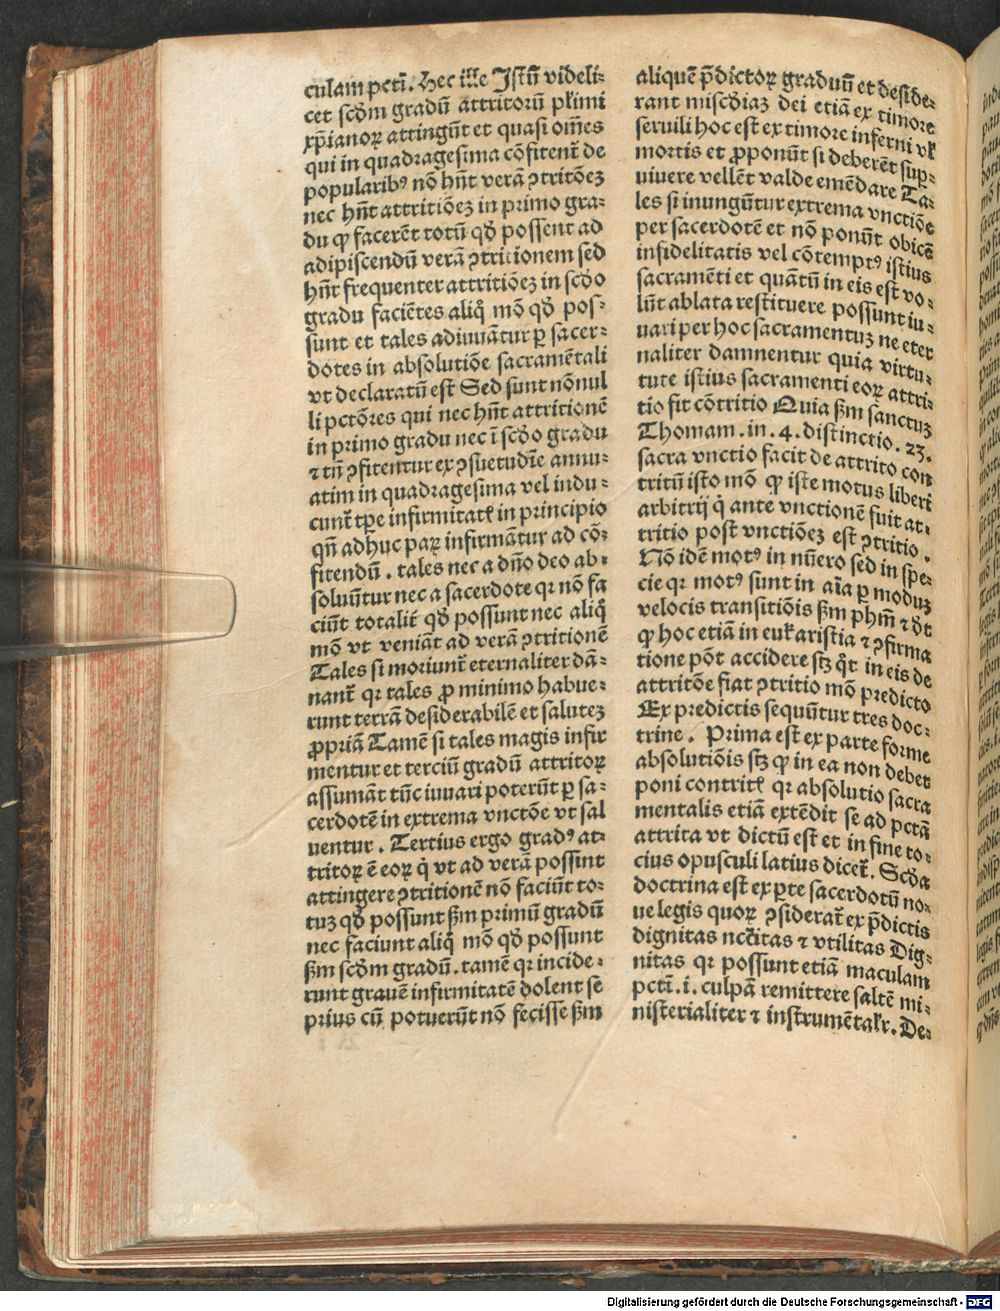 culam pctī. Hec ille Istū videli-
cet scd̄m gradū attritorū pl̄imi
xp̄ianoꝝ attingūt et quasi oīn̄es
qui in quadragesima cōfitent̄ de
popularibꝰ nō hn̄t verā ꝯtritōeꝫ
nec hn̄t attritiōeꝫ in primo gra-
du ꝙ facerēt totū qd̄ possent ad
adipiscendū verā ꝯtricionem sed
hn̄t frequenter attritiōeꝫ in scd̄o
gradu faciētes aliq̄ mō qd̄ pos-
sunt et tales adiuuātur ꝑ sacer-
dotes in absolutiōe sacramētali
vt declaratū est Sed sunt nōnul
li pctōres qui nec hn̄t attritionē
in primo gradu nec ī scd̄o gradu
⁊ tn̄ ꝯfitentur ex ꝯsuetudīe annu-
atim in quadragesima vel indu-
cunt̄ tꝑe infirmitatꝭ in principio
qn̄ adhuc paꝝ infirmātur ad cō-
fitendū. tales nec a dn̄o deo ab-
soluūtur nec a sacerdote qꝛ nō fa
ciūt totalit̄ qd̄ possunt nec aliq̄
mō vt veniāt ad verā ꝯtritionē
Tales si moriunt̄ eternaliter dā-
nant̄ qꝛ tales ꝓ minimo habue-
runt terrā desiderabilē et saluteꝫ
ꝓpriā Tamē si tales magis infir
mentur et terciū gradū attritoꝝ
assumāt tūc iuuari poterūt ꝑ sa-
cerdotē in extrema vnctōe vt sal
uentur. Tertius ergo gradꝰ at-
tritoꝝ ē eoꝝ q̄ vt ad verā possint
attingere ꝯtritionē nō faciūt to-
tuꝫ qd̄ possunt ẜm primū gradū
nec faciunt aliq̄ mō qd̄ possunt
ẜm scd̄m gradū. tamē qꝛ incide-
runt grauē infirmitatē dolent se
prius cū potuerūt nō fecisse ẜm
aliquē p̄dictoꝝ graduū et deside-
rant mis̄cd̄iaꝫ dei etiā ex timore
seruili hoc est ex timore inferni vꝉ
mortis et ꝓponūt si deberēt sup-
uiuere vellēt valde emēdare Ta-
les si inungūtur extrema vnctiōe
per sacerdotē et nō ponūt obicē
infidelitatis vel cōtemptꝰ istius
sacramēti et quātū in eis est vo-
lūt ablata restituere possunt iu-
uari per hoc sacramentuꝫ ne eter
naliter damnentur quia virtu-
tute istius sacramenti eoꝝ attri-
tio fit cōtritio Quia ẜm sanctuꝫ
Thomam. in. 4. distinctio. 23.
sacra vnctio facit de attrito con
tritū isto mō ꝙ iste motus liberi
arbitrij q̄ ante vnctionē fuit at-
tritio post vnctiōeꝫ est ꝯtritio.
Nō idē motꝰ in nūero sed in spe-
cie qꝛ motꝰ sunt in aīa ꝑ moduꝫ
velocis transitiōis ẜm phm̄ ⁊ dt̄
ꝙ hoc etiā in eukaristia ⁊ ꝯfirma
tione pōt accidere sꝫ qꝫ in eis de
attritōe fiat ꝯtritio mō predicto
Ex predictis sequūtur tres doc-
trine. Prima est ex parte forme
absolutiōis sꝫ ꝙ in ea non debet
poni contritꝭ qꝛ absolutio sacra
mentalis etiā extēdit se ad pctā
attrita vt dictū est et in fine to-
cius opusculi latius dicet̄. Scd̄a
doctrina est ex ꝑte sacerdotū no-
ue legis quoꝝ ꝯsiderat̄ ex p̄dictis
dignitas nc̄citas ⁊ vtilitas Dig-
nitas qꝛ possunt etiā maculam
pctī. i. culpā remittere saltē mi-
nisterialiter ⁊ instrumētalr̄. De-
Digitalisierung gefördert durch die Deutsche Forschungsgemeinschaft - DFG